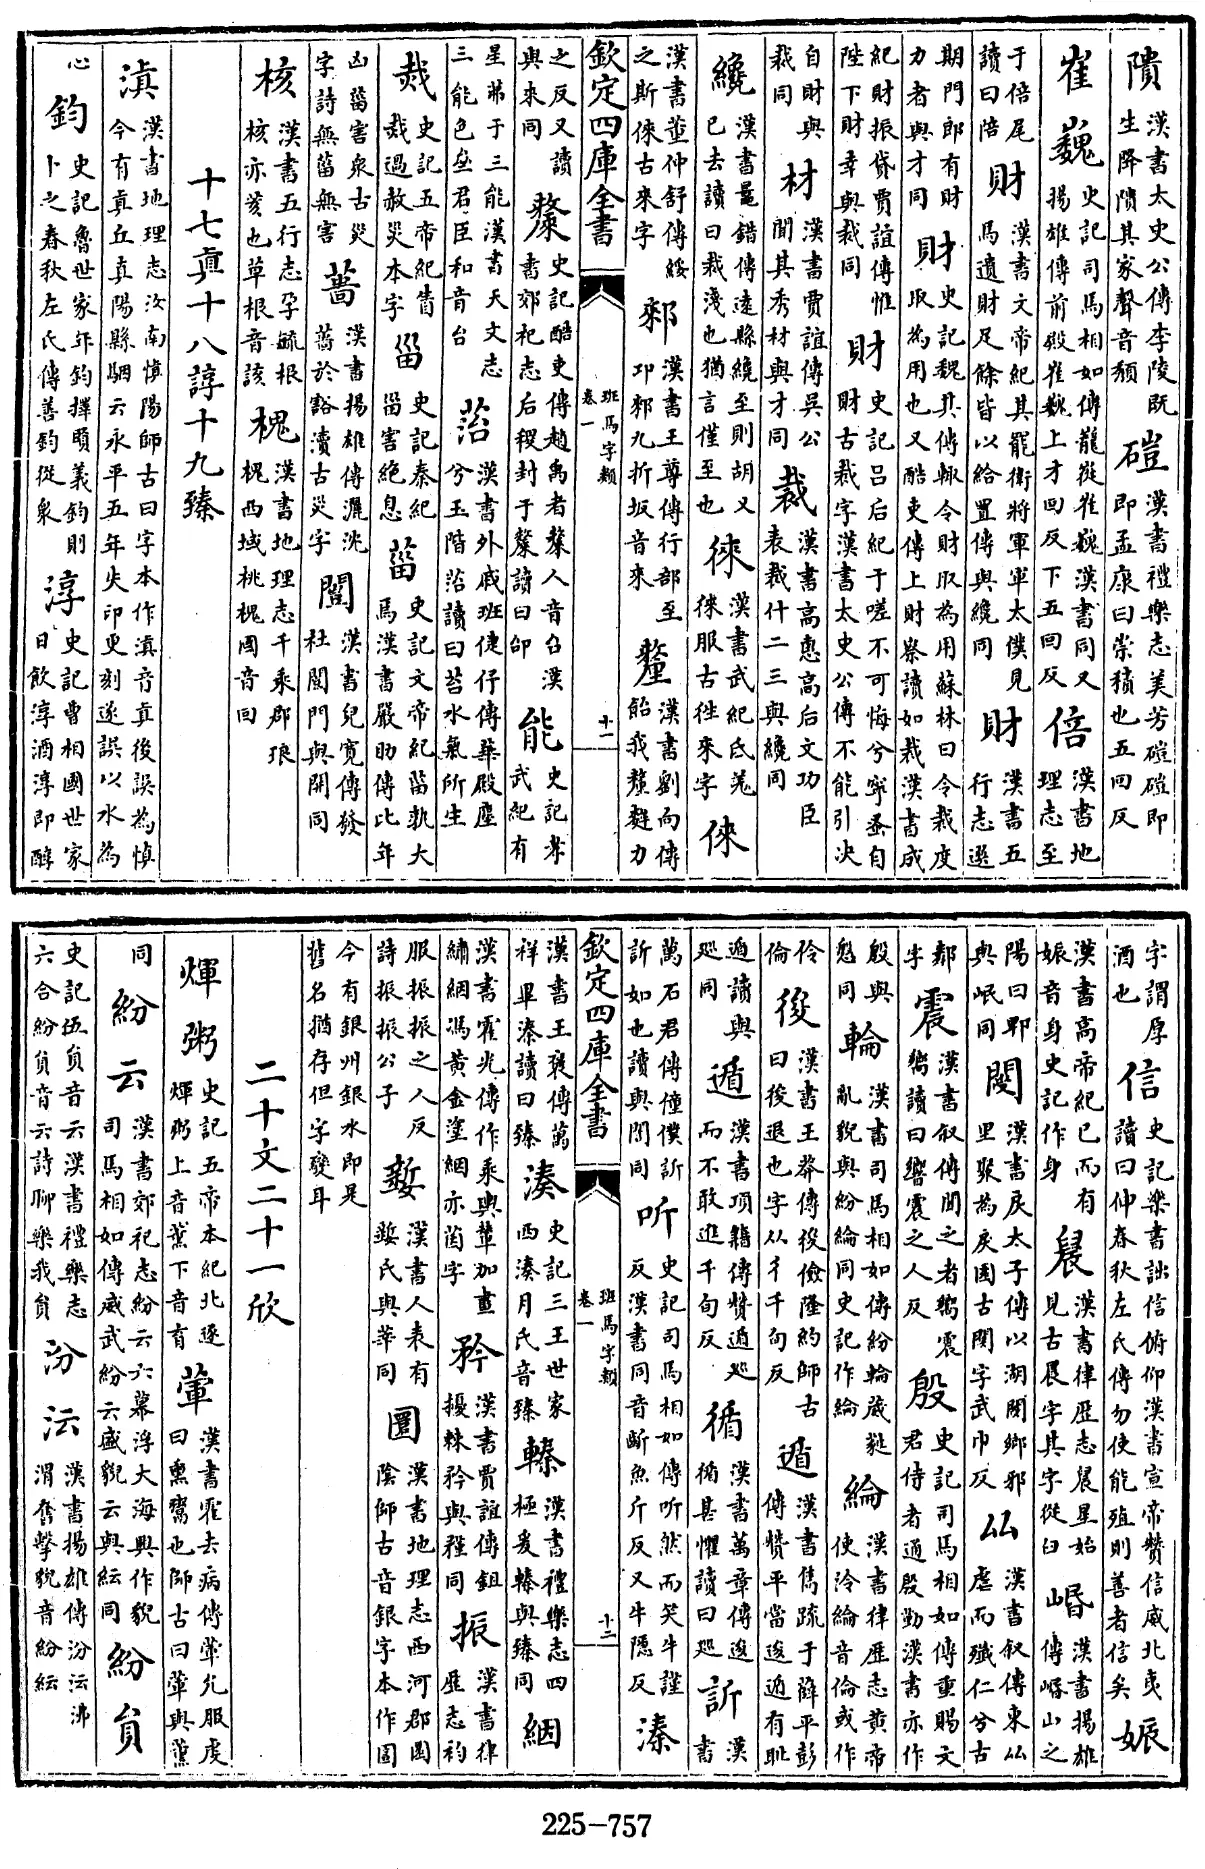 隤漢書太史公傳李陵既生降隤其家聲音頽磑漢書禮樂志美芳磑磑即即孟康曰崇積也五回反
崔巍史記司馬相如傳龍嵸崔巍漢書同又揚雄傳前殿崔巍上才回反下五回反倍漢書地理志至
于倍尾讀曰陪財漢書文帝紀其罷衛將軍軍太僕見馬遺財足餘皆以給置傳與纔同財漢書五行志選
期門郎有財力者與才同財史記魏其傳輙令財取為用蘇林曰令裁度取為用也又酷吏傳上財察讀如裁漢書成
紀財振貸賈誼傳惟陛下財幸與裁同財史記呂后紀于嗟不可悔兮寧蚤自財古裁字漢書太史公傳不能引決
自財與裁同材漢書賈誼傳吳公聞其秀材與才同裁漢書高惠高后文功臣表裁什二三與纔同
纔漢書鼂錯傳遠縣纔至則胡又已去讀曰裁淺也猶言僅至也徠漢書武紀氐羌徠服古徃來字倈
漢書董仲舒傳綏之斯倈古來字郲漢書王尊傳行部至邛郲九折坂音來釐漢書劉向傳飴我釐麰力
欽定四庫全書 班馬字類 卷一 十一
之反又讀與來同斄史記酷吏傳趙禹者斄人音台漢書郊祀志后稷封于斄讀曰邰能史記孝武紀有
星茀于三能漢書天文志三能色君臣和音台菭漢書外戚班倢伃傳華殿塵兮玉階菭讀曰苔水氣所生
烖史記五帝紀眚烖過赦災本字甾史記秦紀甾害絶息菑史記文帝紀菑孰大馬漢書嚴助傳比年
凶菑害衆古災字詩無菑無害漢書揚雄傳灑沈於豁瀆古災字闓漢書兒寛傳發祉闓門與開同
核漢書五行志孕毓根核亦荄也草根音該槐漢書地理志千乘郡琅槐西域桃槐國音回
十七真十八諄十九臻
滇漢書地理志汝南慎陽師古曰字本作滇音真後誤為慎今有真丘真陽縣駰云永平五年失印更刻遂誤以水為
心鈞史記魯世家年鈞擇賢義鈞則卜之春秋左氏傳善鈞從衆淳史記曹相國世家日飲淳酒淳即醇
字謂厚酒也信史記樂書詘信俯仰漢書宣帝贊信威北夷讀曰伸春秋左氏傳勿使能殖則善者信矣娠
漢書高帝紀已而有娠音身史記作身晨漢書律歴志晨星始見古晨字其字從臼㟭漢書揚雄傳㟭山之
陽曰郢與岷同閺漢書戾太子傳以湖閺鄉邪里聚為戾園古閿字武巾反厸漢書叙傳東厸虐而殲仁兮古
鄰字震漢書叙傳聞之者響震讀曰響震之人反殷史記司馬相如傳重賜文君侍者通殷勤漢書亦作
殷與慇同輪漢書司馬相如傳紛輪葳蕤亂貌與紛綸同史記作綸綸漢書律歴志黄帝使泠綸音倫或作
伶倫後漢書王莽傳後儉隆約師古曰後退也字从彳千旬反遁漢書雋疏于薛平彭傳贊平當逡遁有恥
遁讀與廵同遁漢書項籍傳贊遁廵而不敢進千旬反循漢書萬章傳逡循甚懼讀曰廵訢漢書
萬石君傳僮僕訢訢如也讀與誾同听史記司馬相如傳听然而笑牛謹反漢書同音齗魚斤反又牛隱反溱
欽定四庫全書 班馬字類 卷一 十二
漢書王襃傳萬祥畢溱讀曰臻湊史記三王世家西湊月氏音臻轃漢書禮樂志四極爰轃與臻同絪
漢書霍光傳作乘輿輦加畫繡絪馮黄金塗絪亦茵字矜漢書賈誼傳鉏擾棘矜與㮙同振漢書律歴志袀
服振振之人反詩振振公子娎漢書人表有娎氏與莘同圁漢書地理志西河郡圁陰師古音銀字本作圁
今有銀州銀水即是舊名猶存但字變耳
二十文二十一欣
煇粥史記五帝本紀北逐煇粥上音薰下音育葷漢書霍去病傳葷允服虔曰熏鬻也師古曰葷與薰
同紛云漢書郊祀志紛云六幕浮大海與作貌司馬相如傳威武紛云盛貌云與紜同紛員
史記伍員音云漢書禮樂志六合紛員音云詩聊樂我員汾沄漢書揚雄傳汾沄沸渭奮擊貌音紛紜
225-757